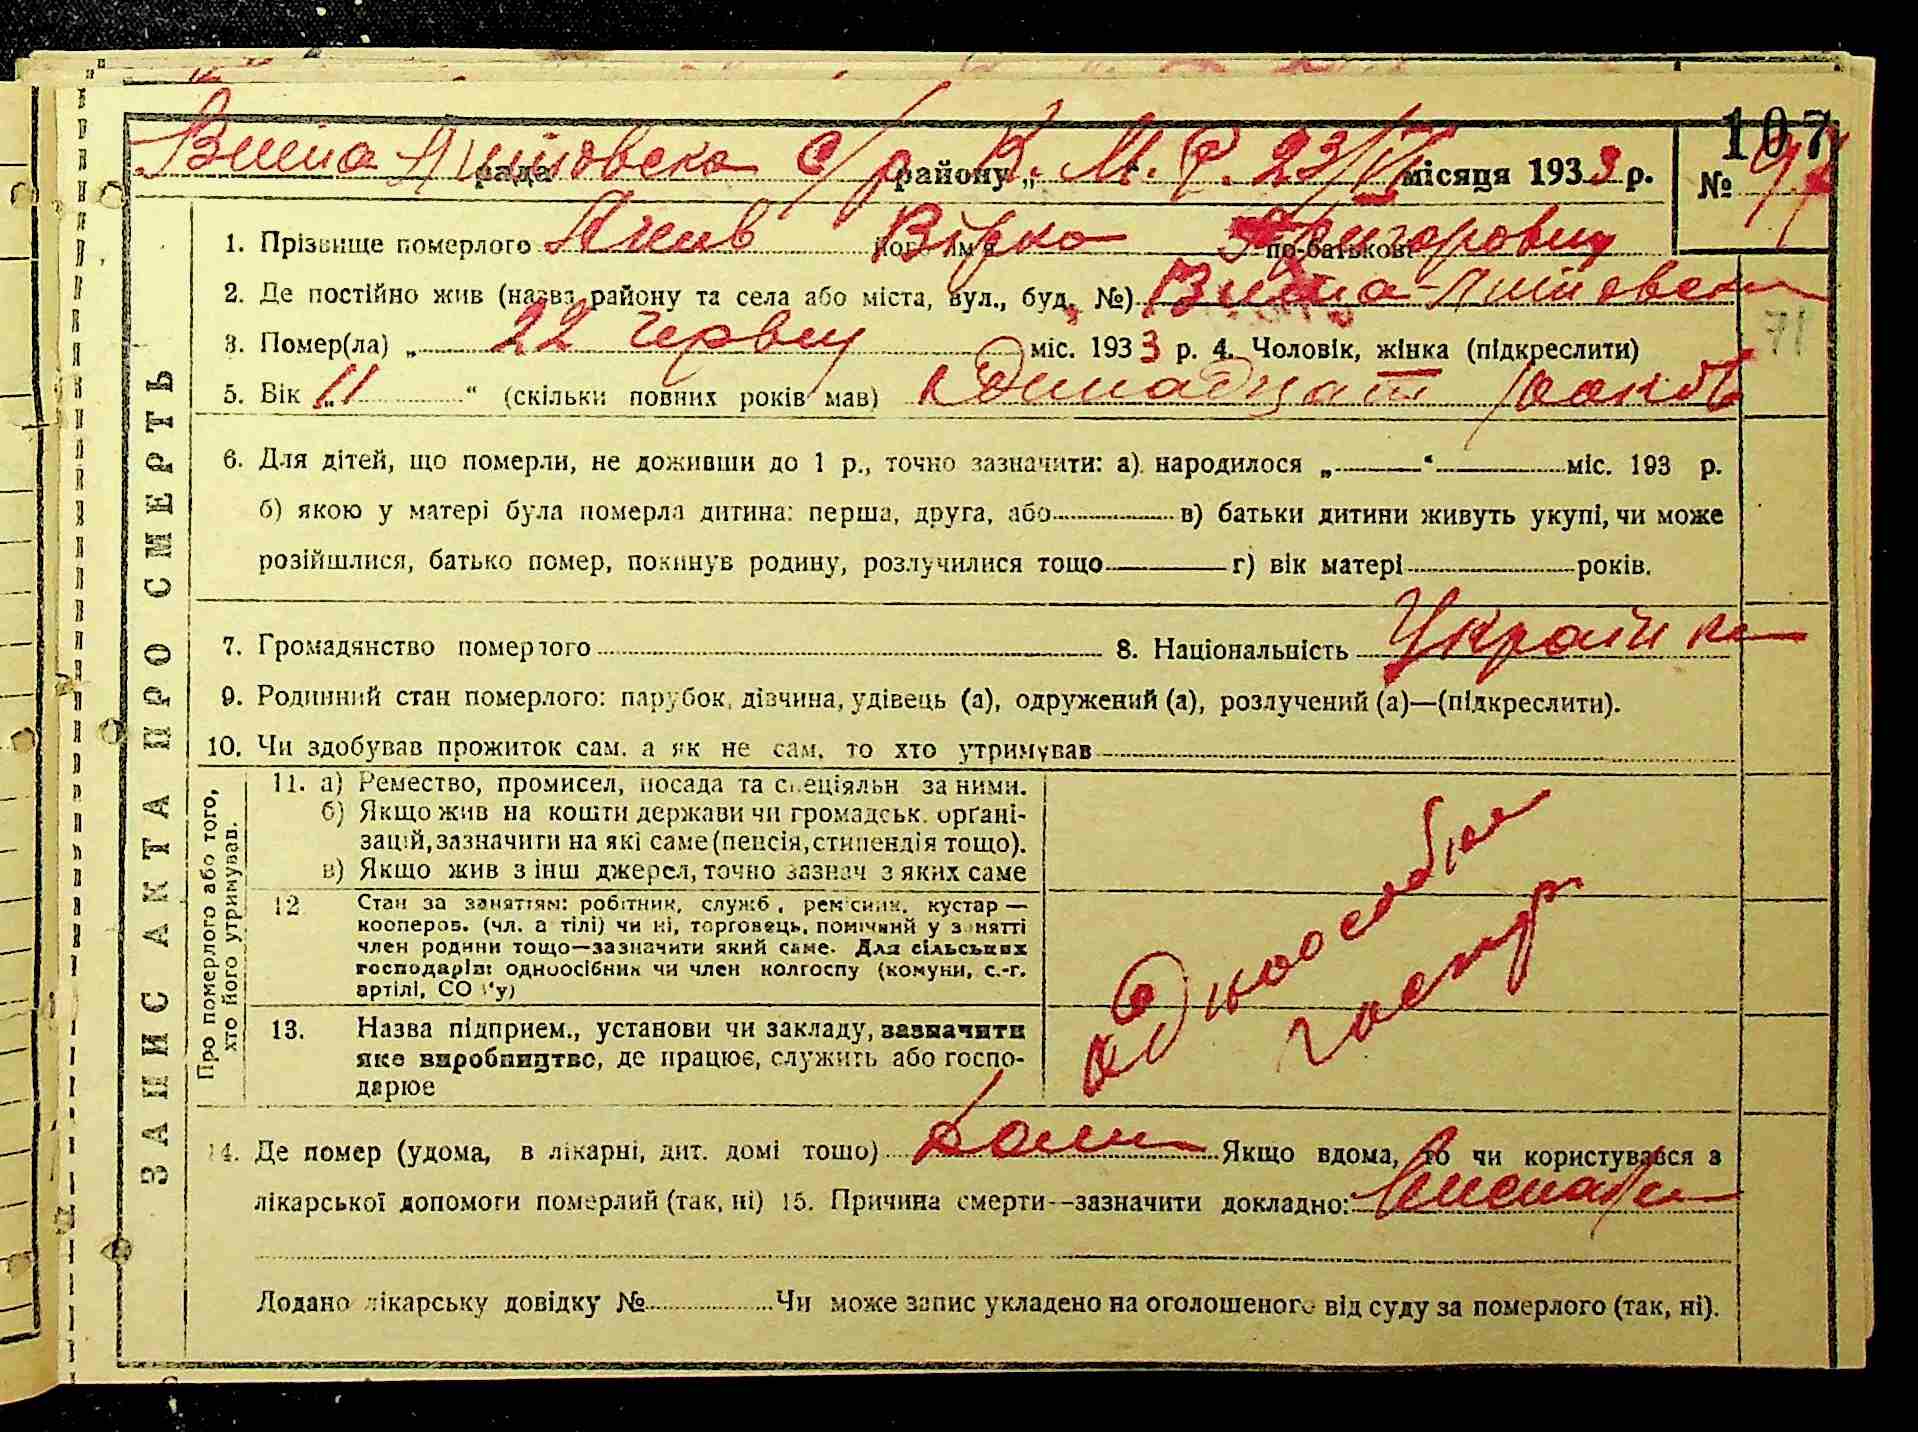 107
рада с/р району „ К. М. Р. 23/VI місяця 1933 р. №
1. Прізвище померлого Якив його ім'я Вірка по-батькові Григоровну
2. Де постійно жив (назва району та села або міста, вул., буд. №)
3. Помер(ла) „ 22 червня міс. 1933 р. 4. Чоловік, жінка (підкреслити)
71
5. Вік „ 11 “ (скільки повних років мав) Одинадцат
6. Для дітей, що померли, не доживши до 1 р., точно зазначити: а) народилося „ “ міс. 193 р.
б) якою у матері була померла дитина: перша, друга, або в) батьки дитини живуть укупі, чи може
розійшлися, батько помер, покинув родину, розлучилися тощо г) вік матері років.
7. Громадянство померлого 8. Національність Українка
9. Родинний стан померлого: парубок, дівчина, удівець (а), одружений (а), розлучений (а)—(підкреслити).
10. Чи здобував прожиток сам, а як не сам, то хто утримував
Про померлого або того, хто його утримував.
11. а) Ремество, промисел, посада та спеціяльн за ними.
б) Якщо жив на кошти держави чи громадськ. орґані-
зацій, зазначити на які саме (пенсія, стипендія тощо).
в) Якщо жив з інш джерел, точно зазнач з яких саме
12 Стан за заняттям: робітник, служб, ремісник, кустар —
кооперов. (чл. артілі) чи ні, торговець, помічний у занятті
член родини тощо—зазначити який саме. Для сільських
господарів: одноосібник чи член колгоспу (комуни, с.-г.
артілі, СОЗ'у)
13. Назва підприєм., установи чи закладу, зазначити
яке виробництво, де працює, служить або госпо-
дарює
14. Де помер (удома, в лікарні, дит. домі тощо) Якщо вдома, то чи користувався з
лікарської допомоги померлий (так, ні) 15. Причина смерти—зазначити докладно:
Додано лікарську довідку № Чи може запис укладено на оголошеного від суду за померлого (так, ні).
ЗАПИС АКТА ПРО СМЕРТЬ